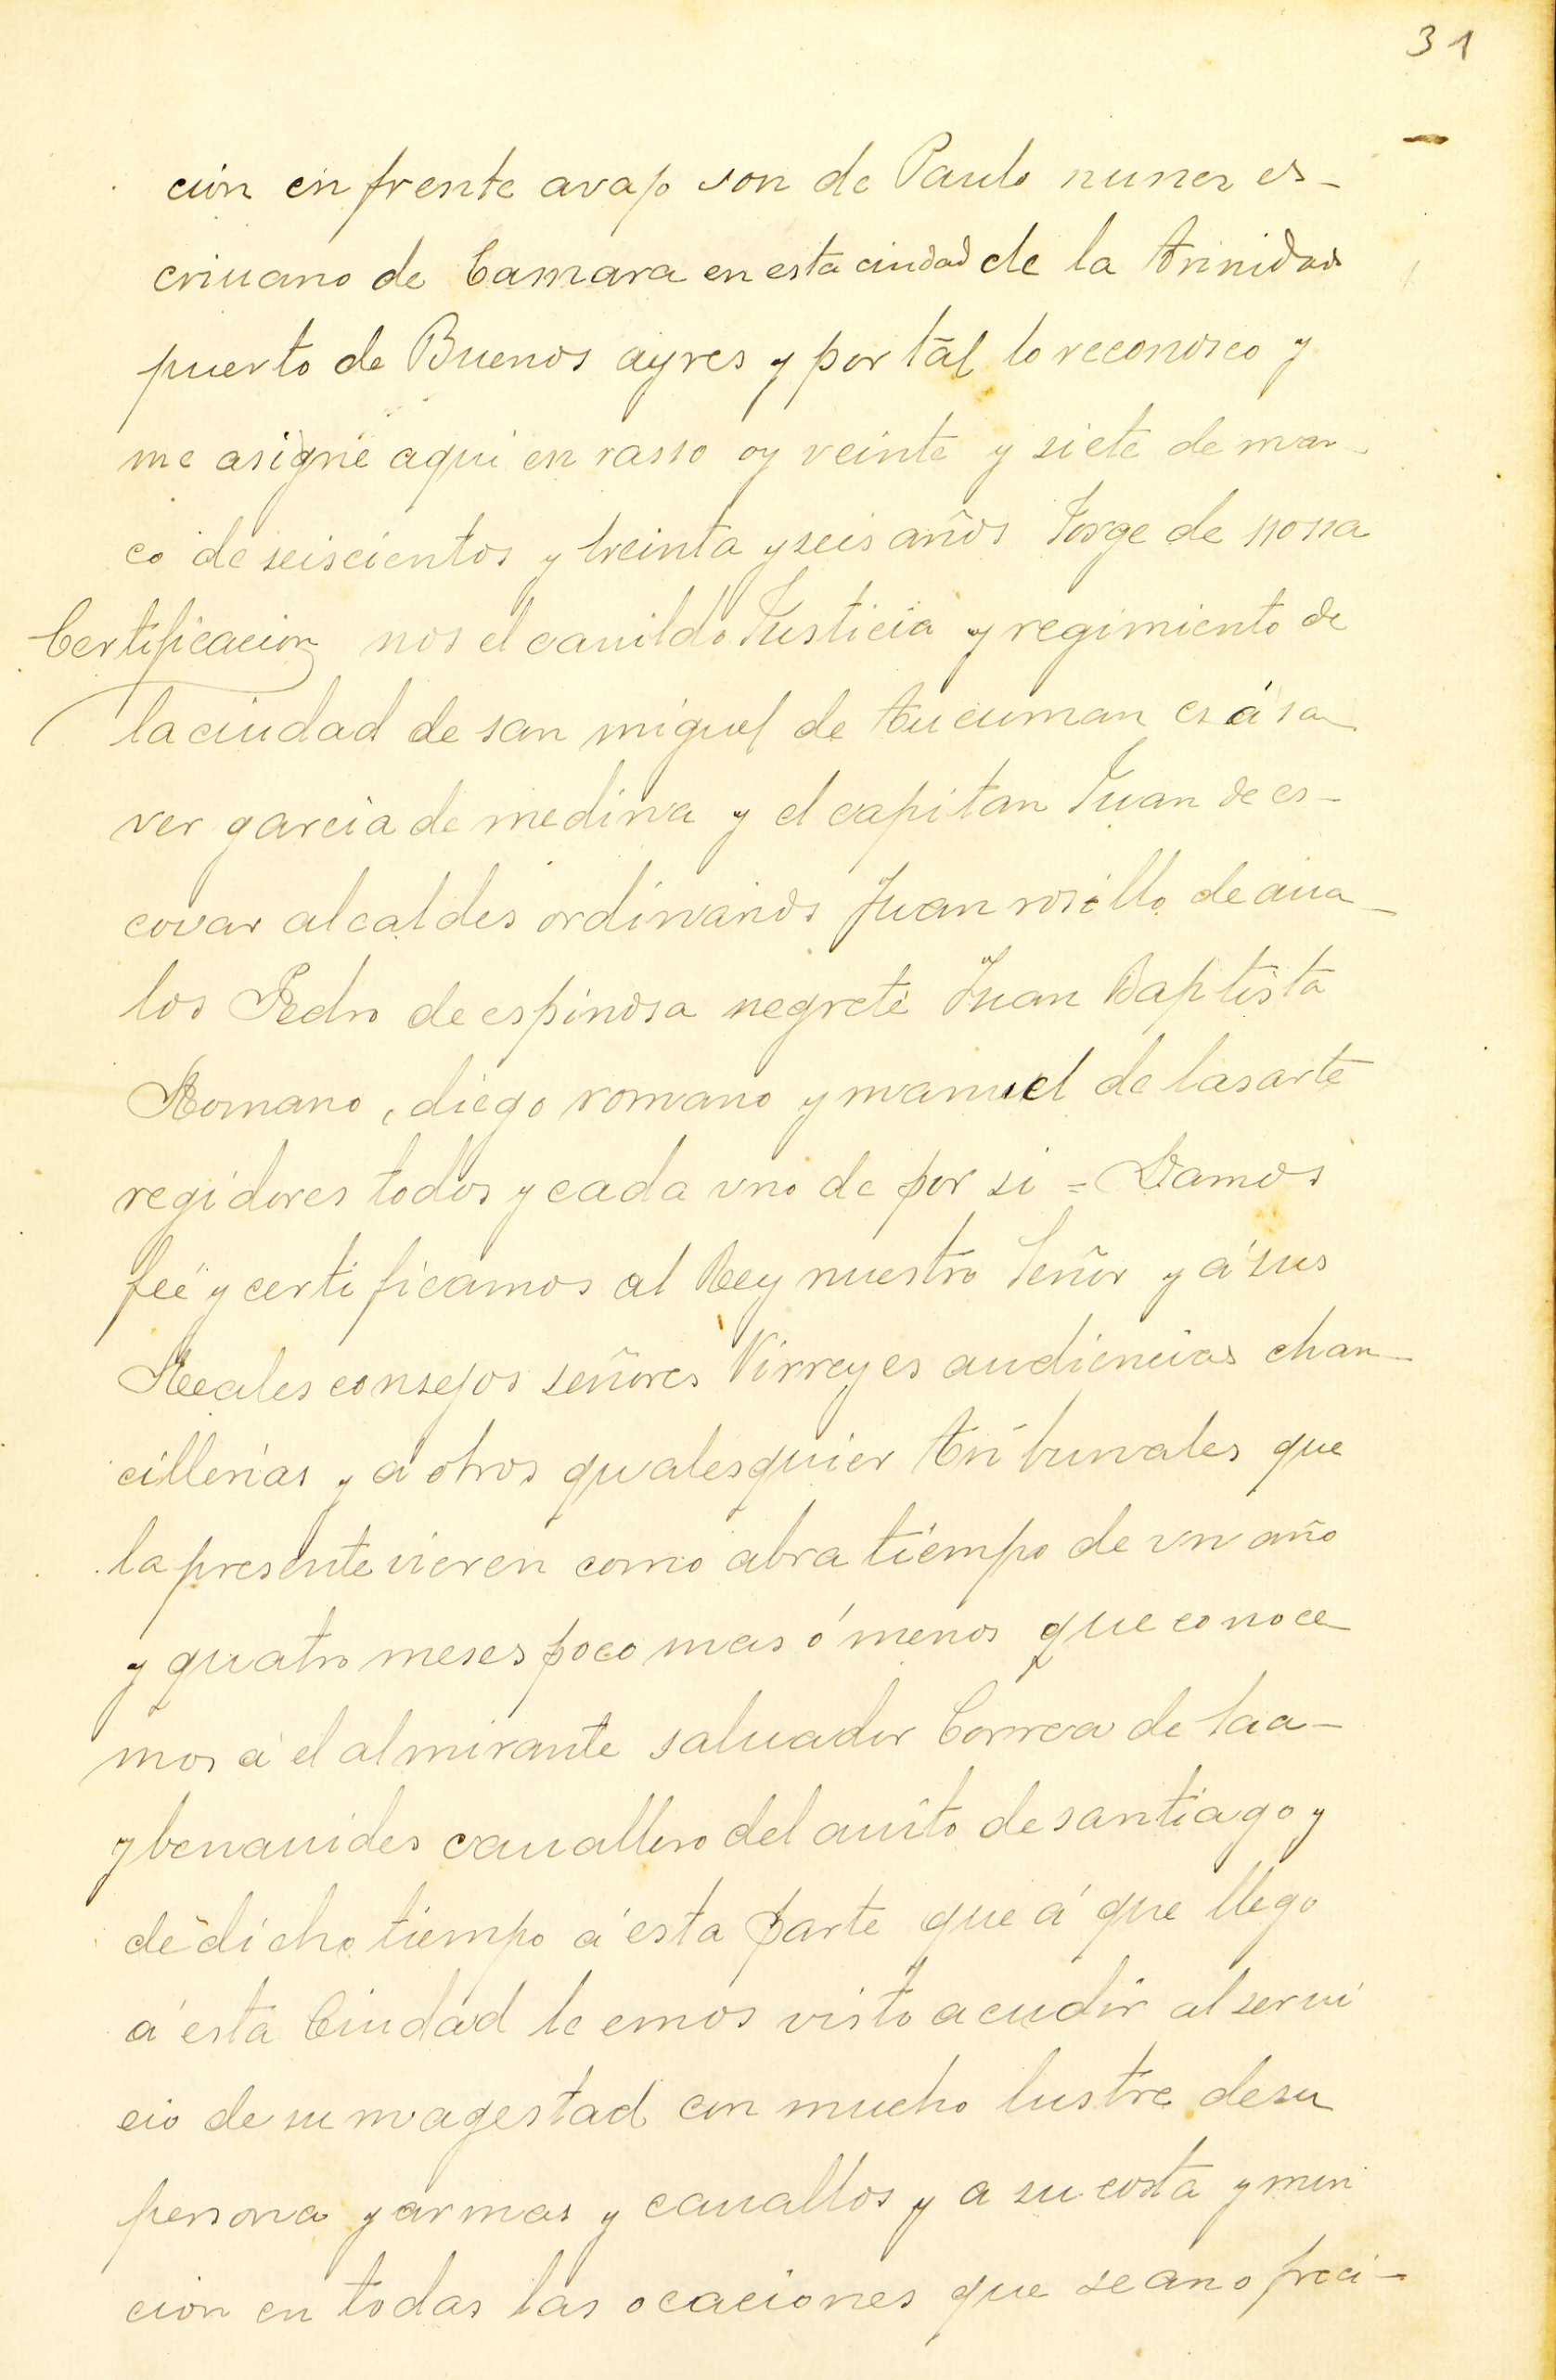 31
cion en frente avajo son de Paulo nunez es-
criuano de Camara en esta ciudad de la trinidad
puerto de Buenos ayres y por tal lo reconosco y
me asigne aqui en rasso oy veinte y siete de mar-
co de seiscientos y treinta y seis años Jorge de sossa
Certificacion nos el cauildo Justicia y regimiento de
la ciudad de san miguel de tucuman es á sa
ver garcia de medina y el capitan Juan de es-
covar alcaldes ordinarios Juan rosillo de aua-
los Pedro de espinosa negrete Juan Baptista
Romano, diego romano y manuel de lasarte
regidores todos y cada vno de por si = Damos
feé y certificamos al Rey nuestro Señor y á sus
Reales consejos señores Virreyes audiencias chan-
cillerias y a otros qualesquier tribunales que
la presente vieren como abra tiempo de vn año
y quatro meses poco mas ó menos que conoce
mos á el almirante saluador Correa de saa-
y benauides cauallero del auito de santiago y
de dicho tiempo á esta parte que á que llego
á esta Ciudad le emos visto acudir al serui
cio de su magestad con mucho lustre de su
persona y armas y cauallos y a su costa y min
cion en todas las ocaciones que se an ofreci-